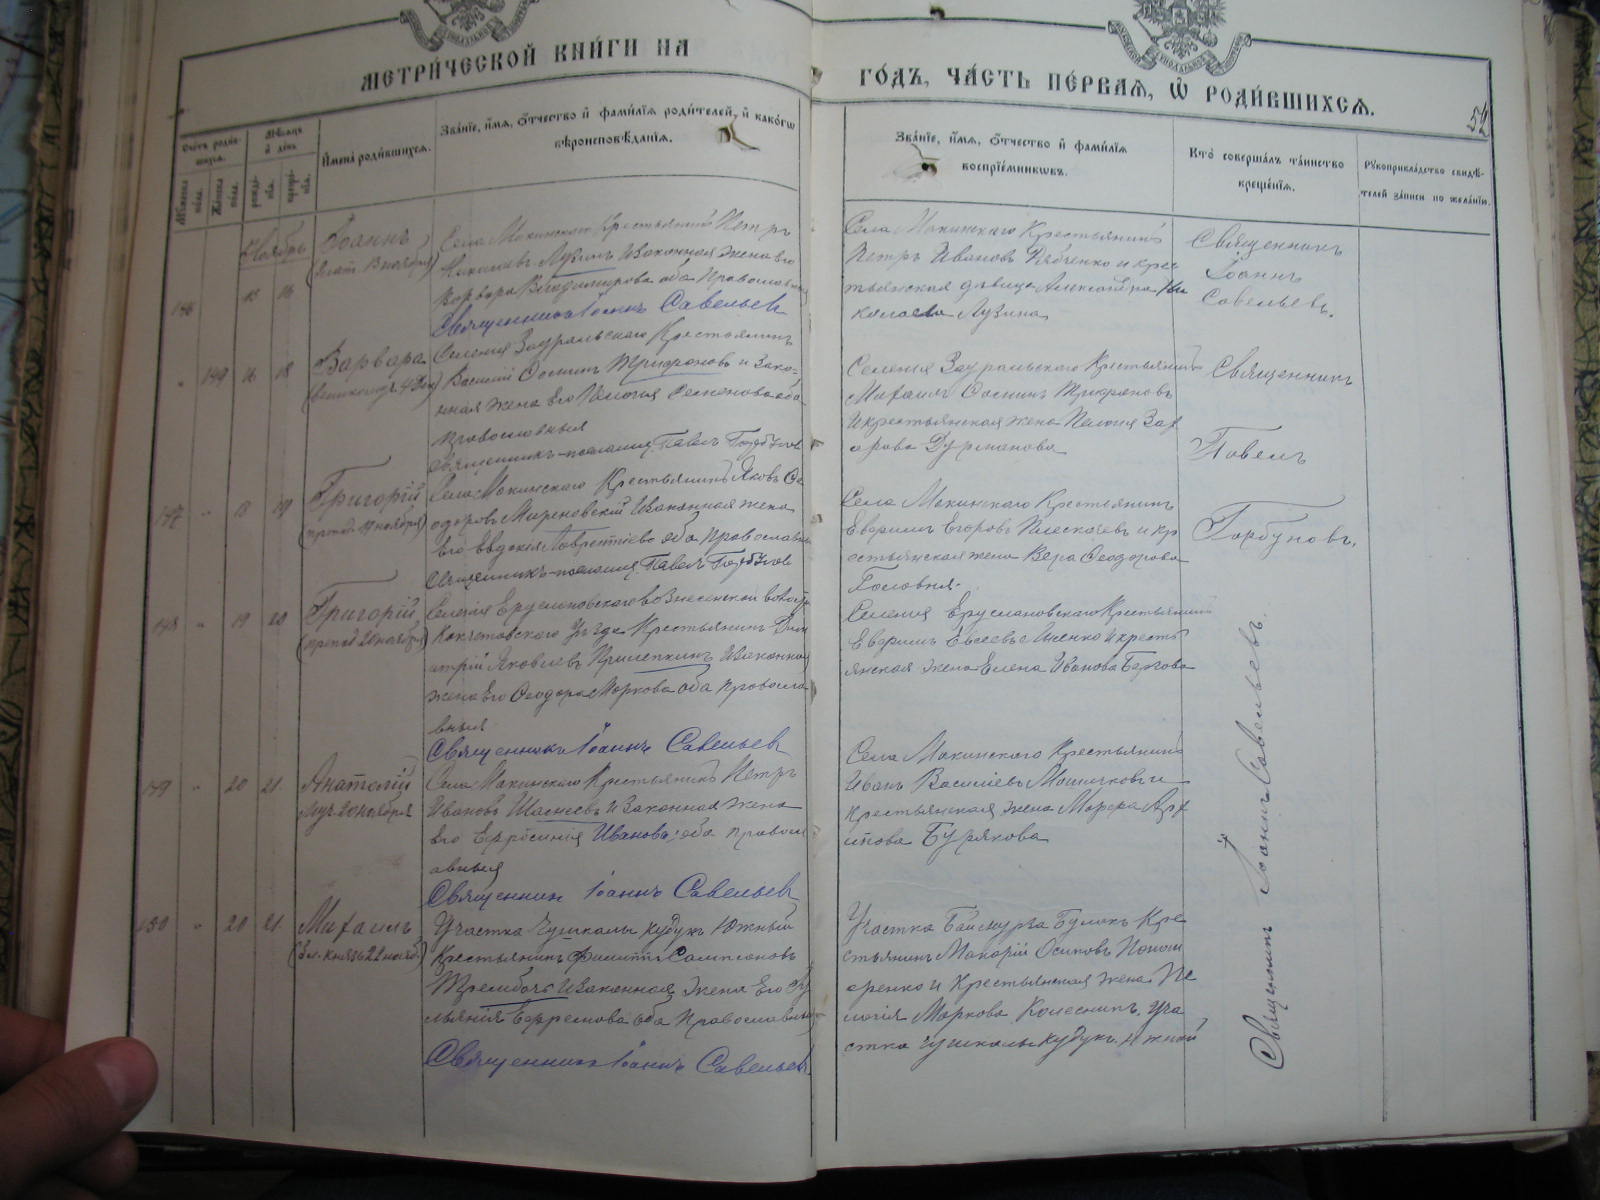 МЕТРИ́ЧЕСКОЙ КНИ́ГИ НА
ГО́ДЪ, ЧА́СТЬ ПЕ́РВАѦ, Ѡ РОДИ́ВШИХСѦ.
52
Сче́тъ роди́в-
шихсѧ.
Мѣ́сѧцъ
и де́нь
Му́жеска
по́ла.
Же́нска
по́ла.
рожд-
ні́ѧ.
креще́-
ні́ѧ.
Имена̀ роди́вшихсѧ.
Зва́ніе, и́мѧ, о́тчество и фами́ліѧ роди́телей, и како́гѡ
вѣроисповѣ́данія.
Зва́ніе, и́мѧ, о́тчество и фами́ліѧ
воспріе́мникѡвъ.
Кто̀ соверша́лъ та́инство
креще́нія.
Рꙋкоприкла́дство свидѣ́-
телей за́писи по жела́нію.
Ноябрь
146
15 16
Іоаннъ
(Злат. 13 ноября)
Села Макинскаго Крестьянинъ Петръ
Николаевъ Лузинъ и законная жена его
Варвара Владимирова оба православные
Священникъ Іоаннъ Савельев
Села Макинскаго Крестьянинъ
Петръ Ивановъ Рябченко и крес
тьянская дѣвица Александра Ни
колаева Лузина
Священникъ
Іоаннъ
Савельевъ.
" 149 16 18
Варвара
(великомуч. 4 Дек)
Селенія Зауральскаго Крестьянинъ
Василій Осипъ Трифоновъ и зако-
нная жена его Пелагія оба
православныя
Священникъ Павелъ Горбунов
Селенія Зауральскаго Крестьянинъ
Михаилъ Осипъ Трифоновъ
и крестьянская жена Пелагія Зах
арова Дурманова
Священникъ
Павелъ
Горбуновъ.
147 " 18 19
Григорій
(препод. 17 ноября)
Села Макинскаго Крестьянинъ Яковъ Ѳе
одоровъ Мареневскій и законная жена
его Евдокія Лаврентіева оба православны
Священникъ Павелъ Горбунов
Села Макинскаго Крестьянинъ
Евфимъ Егоровъ Плескачевъ и кр
естьянская жена Вера Ѳеодорова
Головня.
148 " 19 20
Григорій
(препод. 20 ноября)
Селенія Еруслановскаго Вознесенской волости
Кокчетавскаго уѣзда Крестьянинъ Дим
итрій Яковлевъ Прилепкинъ и законная
жена его Ѳеодора Маркова оба правосла
вныя
Священникъ Іоаннъ Савельев
Селенія Еруслановскаго Крестьянинъ
Евфимъ Евсеевъ Лисенко и кресть
янская жена Елена Иванова Баргова
149 " 20 21.
Анатолій
Муч. 20 ноября
Села Макинскаго Крестьянинъ Петръ
Ивановъ Шаснеевъ и законная жена
его Ефросинія Иванова, оба правосл
авныя
Священникъ Іоаннъ Савельев
Села Макинскаго Крестьянинъ
Иванъ Василіевъ Машичковъ и
крестьянская жена Марфа Арх
ипова Бурякова
150 " 20 21.
Михаилъ
(Бл. князь 22 нояб.)
Участка Чушкалы Кудукъ Южный
Крестьянинъ Филиппъ Сампсоновъ
Трембачъ и законная жена его Іу
льянія Ефремова оба православны
Священникъ Іоаннъ Савельевъ.
Участка Баймурза Булакъ Кре
стьянинъ Макарій Осиповъ Поном
аренко и Крестьянская жена Пе
лагія Маркова Колесникъ, Уча
стка Чушкалы Кудукъ Южный
Священникъ Іоаннъ Савельевъ